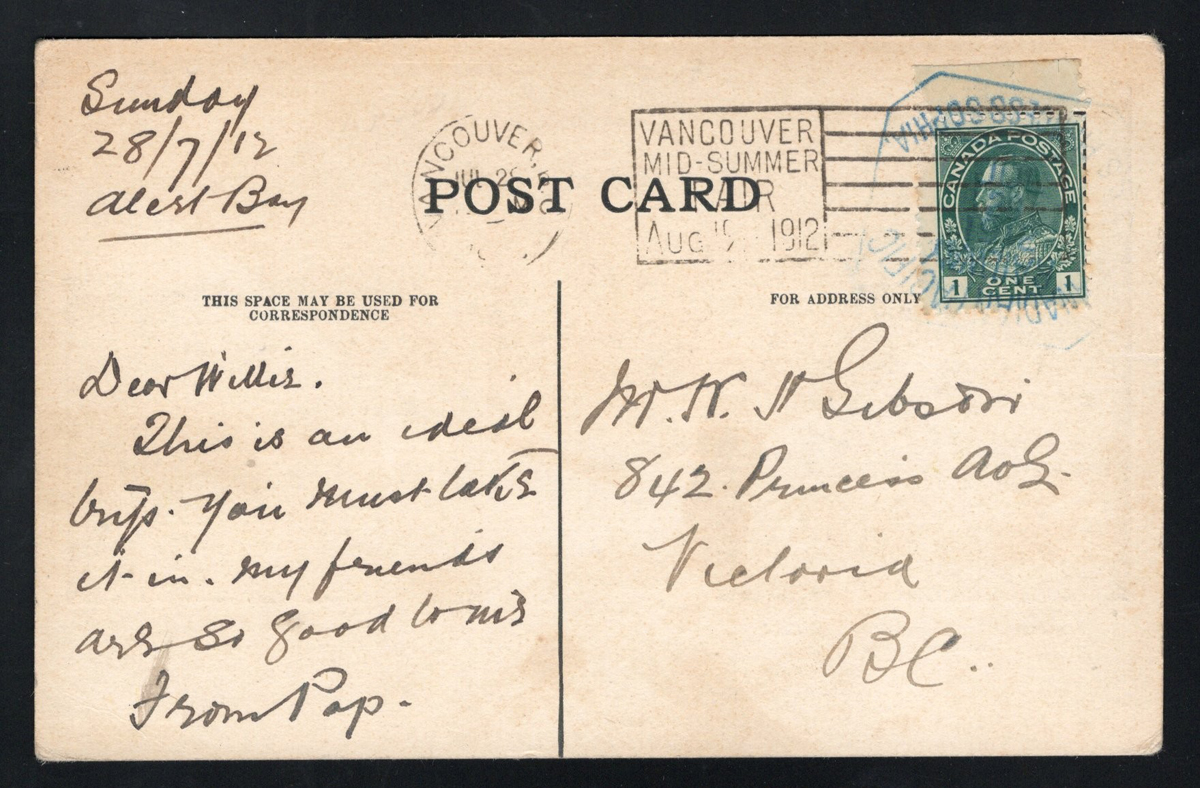 Sunday
28/7/12
Alert Bay
VANCOUVER, B.
JUL 29
POST CARD
VANCOUVER
MID-SUMMER
FAIR
Aug 19 1912
CANADA POSTAGE
1 ONE CENT 1
THIS SPACE MAY BE USED FOR
CORRESPONDENCE
FOR ADDRESS ONLY
Dear Willie.
This is an ideal
trip. You must take
it in. My friends
are so good to me
From Pap.
Mr. W. H Gibson
842. Princess Ave.
Victoria
BC..